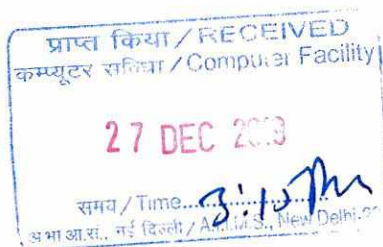 प्राप्त किया / RECEIVED
कम्प्यूटर सुविधा / Computer Facility
27 DEC
समय / Time......3:10 Pm
अ भा आ.सं., नई दिल्ली / A.I.I.M.S., New Delhi-29